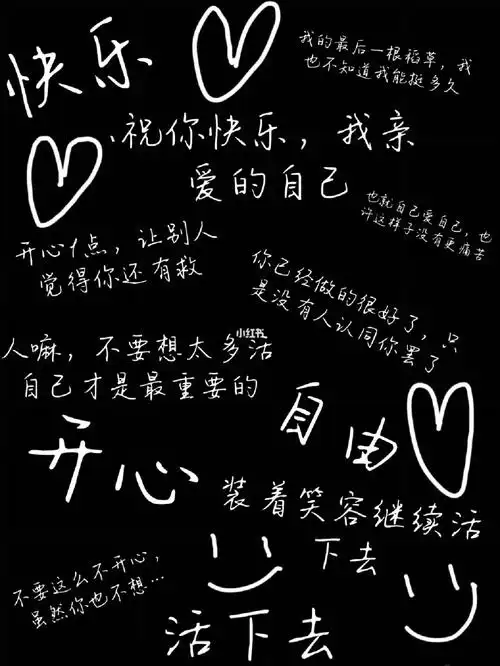 快乐
我的最后一根稻草，我
也不知道我能挺多久
祝你快乐，我亲
爱的自己
也就自己爱自己，也
许这样子没有更痛苦
开心1点，让别人
觉得你还有救
你已经做的很好了，只
是没有人认同你罢了
小红书
人嘛，不要想太多活
自己才是最重要的
自由
开心
装着笑容继续活
下去
不要这么不开心，
虽然你也不想…
活下去